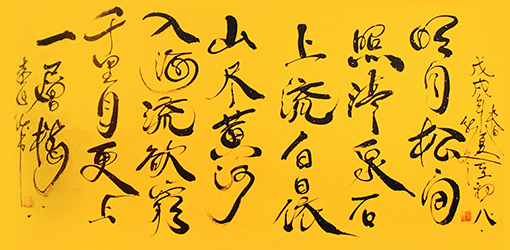 戊戌年春
明月松间
照清泉石
上流白日依
山尽黄河
入海流欲窮
千里目更上
一層楼